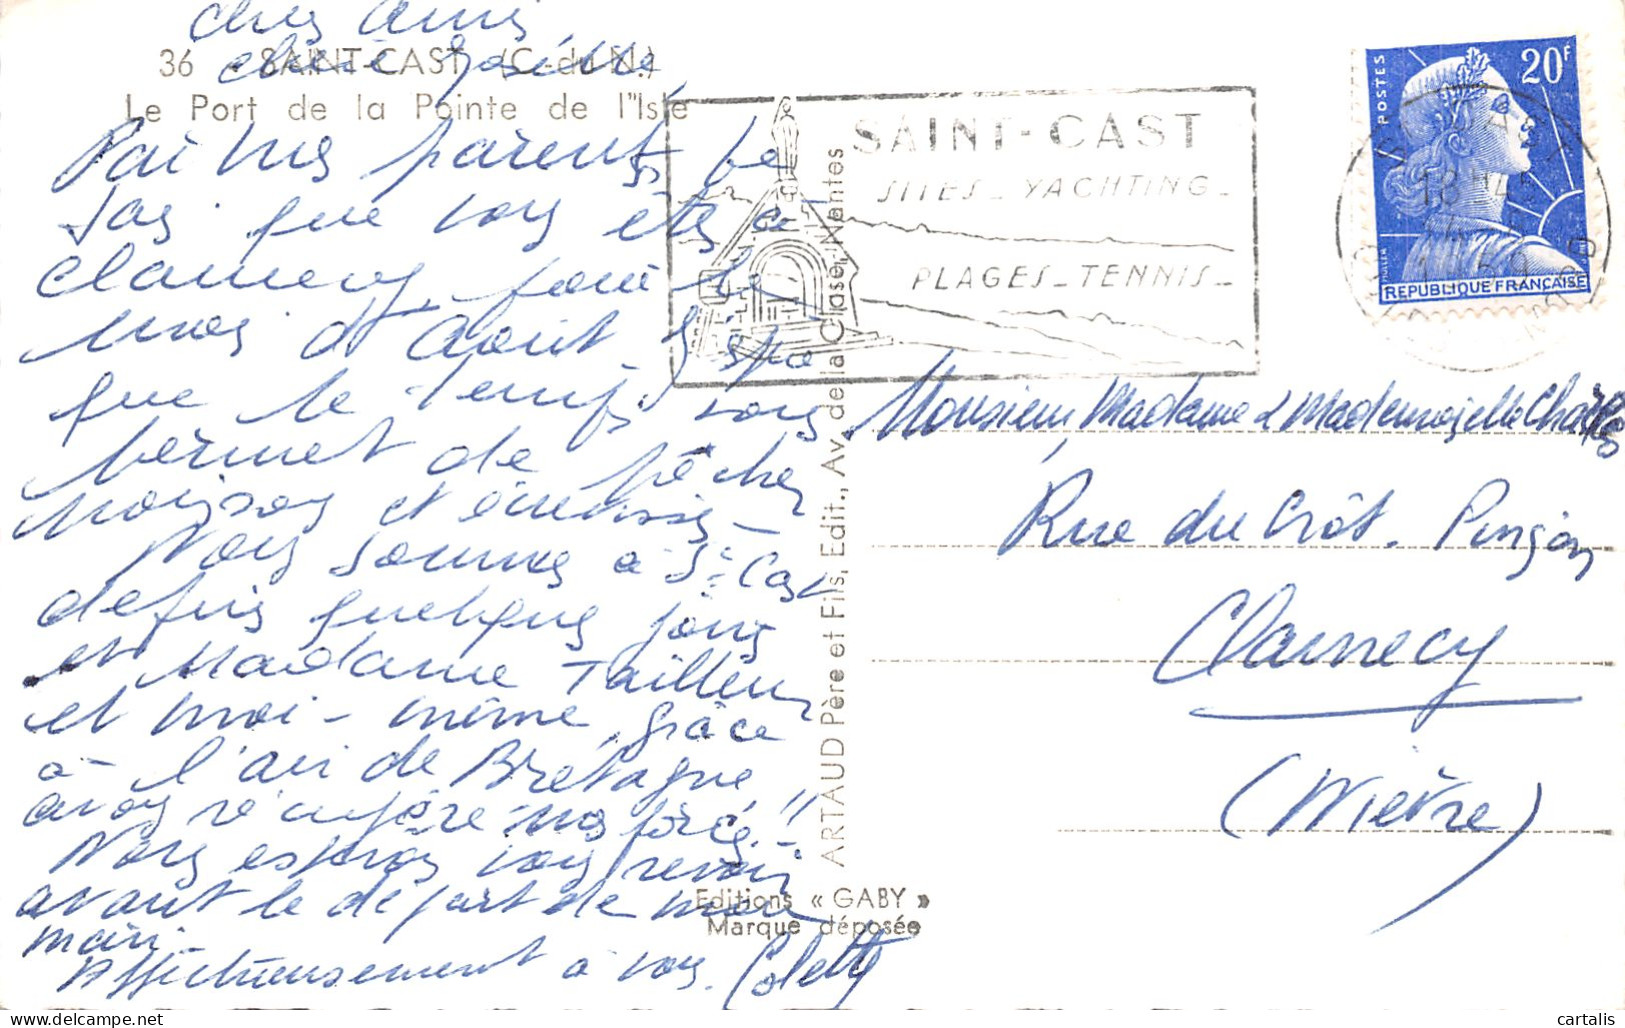 Chers Amis
chère Josette
36 - SAINT-CAST (C.-du-N.)
Le Port de la Pointe de l'Isle
Par mes parents je
sais que vous êtes à
Clamecy, pour le
mois d'Août. J'espère
que le temps vous
permet de pêcher
poissons et écrevisses -
Nous sommes à St Cast
depuis quelques jours
et Madame Tailleur
et moi-même, grâce
à l'air de Bretagne
avons récupéré nos forces!!
Nous espérons vous revoir
avant le départ de mon
mari -
Affectueusement à vous. Colette
SAINT-CAST
SITES - YACHTING -
PLAGES - TENNIS -
POSTES
20F
REPUBLIQUE FRANÇAISE
ST CAST
18H45
ARTAUD Père et Fils, Edit., Av. de la Close, Nantes
Editions « GABY »
Marque déposée
Monsieur, Madame & Mademoiselle
Rue du Crôt-Pinçon
Clamecy
(Nièvre)
cartalis